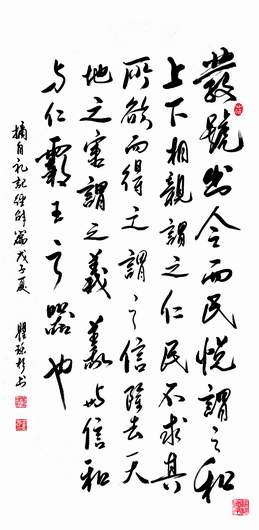 發號出令而民悅謂之和
上下相親謂之仁民不求其
所欲而得之謂之信除去天
地之害謂之義義與信和
與仁霸王之器也
摘自礼記經解篇戊子夏